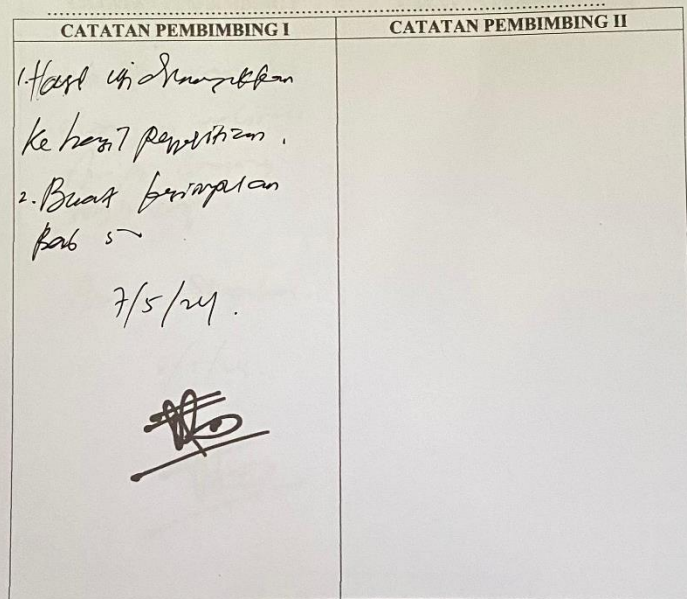 CATATAN PEMBIMBING I
CATATAN PEMBIMBING II
1. Hasil uji
ke hasil penelitian.
2. Buat kesimpulan
Bab 5
7/5/24.